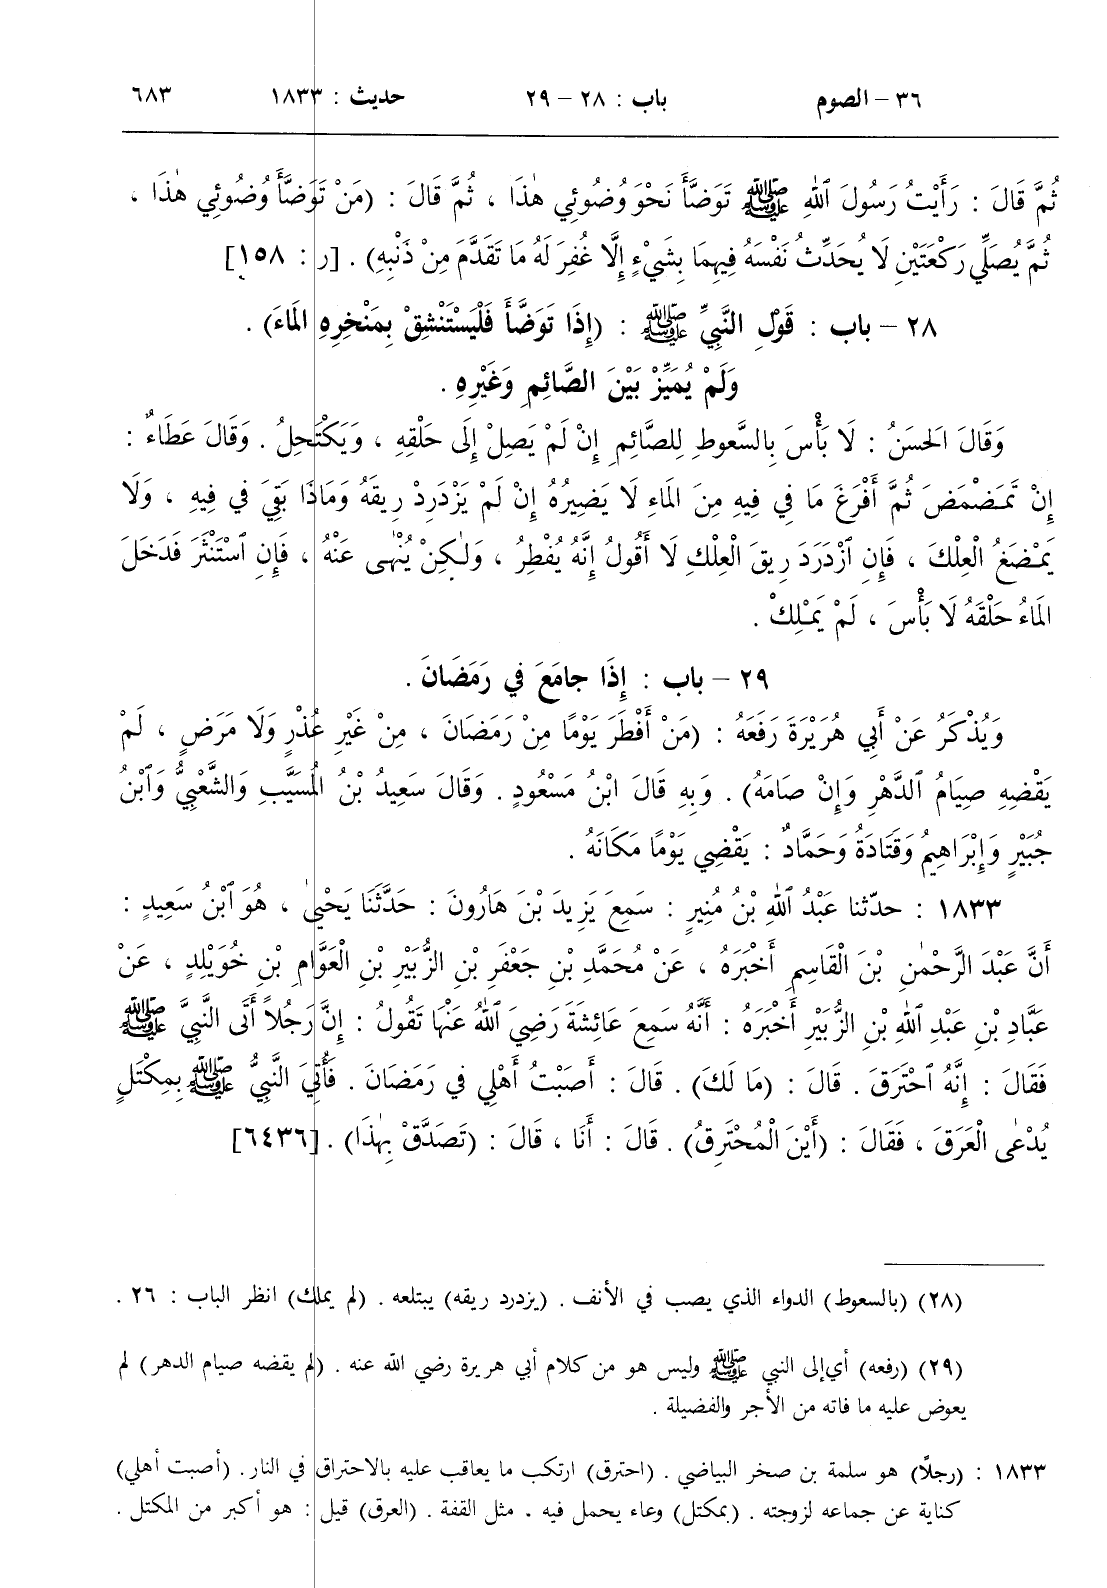 ٣٦ – الصوم باب : ٢٨ – ٢٩ حديث : ١٨٣٣ ٦٨٣
ثُمَّ قَالَ : رَأَيْتُ رَسُولَ ٱللهِ ﷺ تَوَضَّأَ نَحْوَ وُضُوئِي هٰذَا ، ثُمَّ قَالَ : (مَنْ تَوَضَّأَ وُضُوئِي هٰذَا ،
ثُمَّ يُصَلِّي رَكْعَتَيْنِ لَا يُحَدِّثُ نَفْسَهُ فِيهِمَا بِشَيْءٍ إِلَّا غُفِرَ لَهُ مَا تَقَدَّمَ مِنْ ذَنْبِهِ) . [ر : ١٥٨]
٢٨ – باب : قَوْلِ النَّبِيِّ ﷺ : (إِذَا تَوَضَّأَ فَلْيَسْتَنْشِقْ بِمَنْخِرِهِ المَاءَ) .
وَلَمْ يُمَيِّزْ بَيْنَ الصَّائِمِ وَغَيْرِهِ .
وَقَالَ الحَسَنُ : لَا بَأْسَ بِالسَّعوطِ لِلصَّائِمِ إِنْ لَمْ يَصِلْ إِلَى حَلْقِهِ ، وَيَكْتَحِلُ . وَقَالَ عَطَاءٌ :
إِنْ تَمَضْمَضَ ثُمَّ أَفْرَغَ مَا فِي فِيهِ مِنَ المَاءِ لَا يَضِيرُهُ إِنْ لَمْ يَزْدَرِدْ رِيقَهُ وَمَاذَا بَقِيَ فِي فِيهِ ، وَلَا
يَمْضَغُ الْعِلْكَ ، فَإِنِ ٱزْدَرَدَ رِيقَ الْعِلْكِ لَا أَقُولُ إِنَّهُ يُفْطِرُ ، وَلٰكِنْ يُنْهٰى عَنْهُ ، فَإِنِ ٱسْتَنْثَرَ فَدَخَلَ
المَاءُ حَلْقَهُ لَا بَأْسَ ، لَمْ يَمْلِكْ .
٢٩ – باب : إِذَا جامَعَ فِي رَمَضَانَ .
وَيُذْكَرُ عَنْ أَبِي هُرَيْرَةَ رَفَعَهُ : (مَنْ أَفْطَرَ يَوْمًا مِنْ رَمَضَانَ ، مِنْ غَيْرِ عُذْرٍ وَلَا مَرَضٍ ، لَمْ
يَقْضِهِ صِيَامُ ٱلدَّهْرِ وَإِنْ صَامَهُ) . وَبِهِ قَالَ ابْنُ مَسْعُودٍ . وَقَالَ سَعِيدُ بْنُ المُسَيَّبِ وَالشَّعْبِيُّ وَٱبْنُ
جُبَيْرٍ وَإِبْرَاهِيمُ وَقَتَادَةُ وَحَمَّادٌ : يَقْضِي يَوْمًا مَكَانَهُ .
١٨٣٣ : حدّثنا عَبْدُ ٱللهِ بْنُ مُنِيرٍ : سَمِعَ يَزِيدَ بْنَ هَارُونَ : حَدَّثَنَا يَحْيىٰ ، هُوَ ٱبْنُ سَعِيدٍ :
أَنَّ عَبْدَ الرَّحْمٰنِ بْنَ الْقَاسِمِ أَخْبَرَهُ ، عَنْ مُحَمَّدِ بْنِ جَعْفَرِ بْنِ الزُّبَيْرِ بْنِ الْعَوَّامِ بْنِ خُوَيْلِدٍ ، عَنْ
عَبَّادِ بْنِ عَبْدِ ٱللهِ بْنِ الزُّبَيْرِ أَخْبَرَهُ : أَنَّهُ سَمِعَ عَائِشَةَ رَضِيَ ٱللهُ عَنْهَا تَقُولُ : إِنَّ رَجُلاً أَتَى النَّبِيَّ ﷺ
فَقَالَ : إِنَّهُ ٱحْتَرَقَ . قَالَ : (مَا لَكَ) . قَالَ : أَصَبْتُ أَهْلِي فِي رَمَضَانَ . فَأُتِيَ النَّبِيُّ ﷺ بِمِكْتَلٍ
يُدْعٰى الْعَرَقَ ، فَقَالَ : (أَيْنَ الْمُحْتَرِقُ) . قَالَ : أَنَا ، قَالَ : (تَصَدَّقْ بِهٰذَا) . [٦٤٣٦]
(٢٨) (بالسعوط) الدواء الذي يصب في الأنف . (يزدرد ريقه) يبتلعه . (لم يملك) انظر الباب : ٢٦ .
(٢٩) (رفعه) أي إلى النبي ﷺ وليس هو من كلام أبي هريرة رضي الله عنه . (لم يقضه صيام الدهر) لم
يعوض عليه ما فاته من الأجر والفضيلة .
١٨٣٣ : (رجلًا) هو سلمة بن صخر البياضي . (احترق) ارتكب ما يعاقب عليه بالاحتراق في النار . (أصبت أهلي)
كناية عن جماعه لزوجته . (بمكتل) وعاء يحمل فيه . مثل القفة . (العرق) قيل : هو أكبر من المكتل .